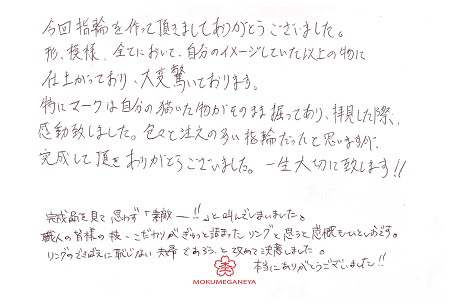 今回指輪を作って頂きましてありがとうございました。
形、模様、全てにおいて、自分のイメージしていた以上の物に
仕上がっており、大変驚いております。
特にマークは自分の描いた物がそのまま掘ってあり、拝見した際、
感動致しました。色々と注文の多い指輪だったと思いますが、
完成して頂きありがとうございました。一生大切に致します!!
完成品を見て思わず「素敵ー!!」と叫んでしまいました。
職人の皆様の技、こだわりがぎゅっと詰まったリングと思うと感慨もひとしおです。
リングのできばえに恥じない夫婦であろうと改めて決意しました。
本当にありがとうございました!!
MOKUMEGANEYA